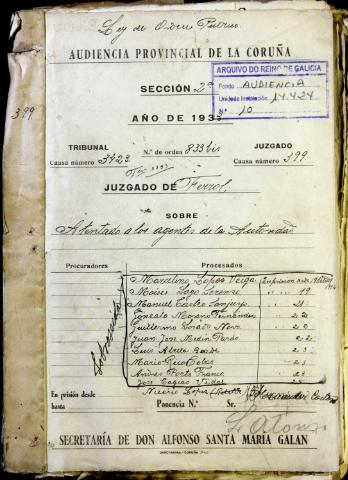 Ley de Orden Publico
AUDIENCIA PROVINCIAL DE LA CORUÑA
ARCHIVO DO REINO DE GALICIA
Fondo AUDIENCIA
Unidade Instalación 14.424
Nº 10
SECCIÓN 2ª
399
AÑO DE 193
TRIBUNAL
Causa número 3423
N.º de orden 833 bis
JUZGADO
Causa número 399
JUZGADO DE Ferrol
SOBRE
Atentado a los agentes de la Autoridad
Procuradores
Procesados
Marcelino Lopez Veiga
Moises Lago
Manuel Castro Sanjurjo
Gonzalo Moreno Fernández
Guillermo Dorado
Juan Jose Marin Pardo
Luis
Mario Rico Cobas
Porto Franco
Jose Vidal
Lopez
En prisión desde
hasta
Ponencia N.º
Sr.
SECRETARÍA DE DON ALFONSO SANTA MARIA GALAN